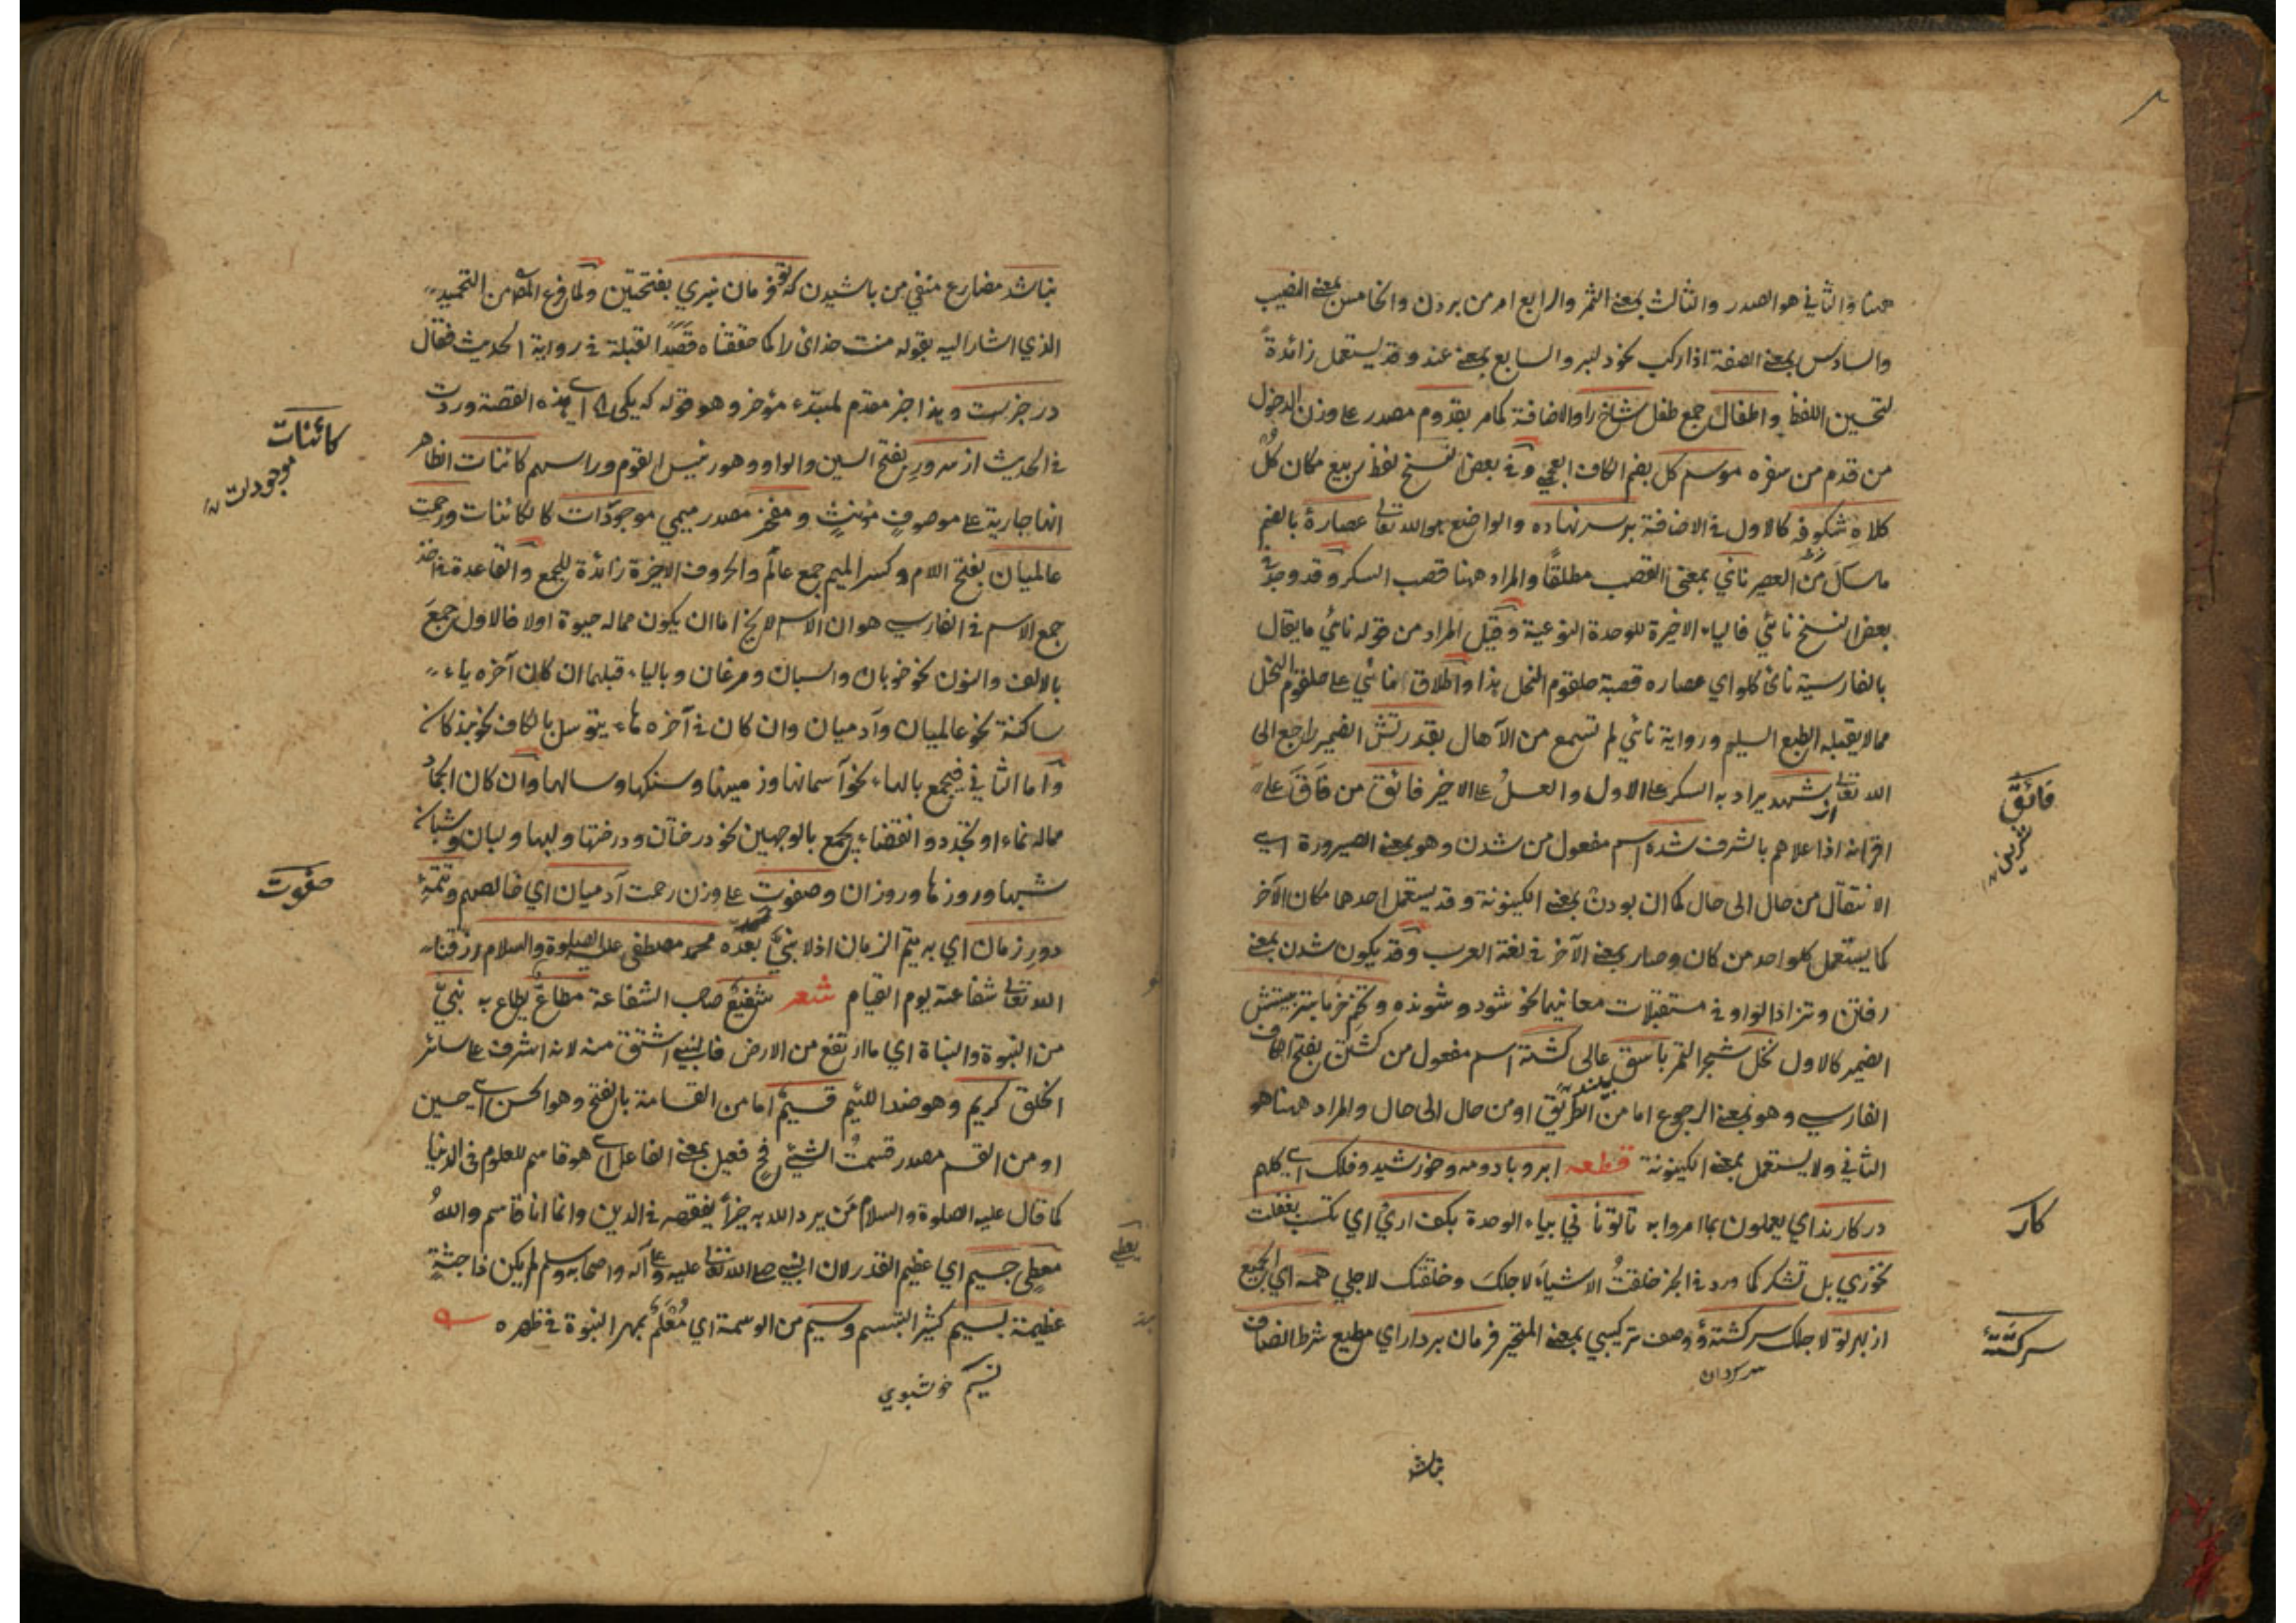 ههنا والثاني هو الصدر والثالث بمعنى الثمر والرابع امر من بردن والخامس بمعنى النصيب
والسادس بمعنى الصفة اذا ركب نحو دلبر والسابع بمعنى عند وقد يستعمل زائدةً
لتحسين اللفظ واطفال جمع طفل شاخ را والاضافة كما مر بقدوم مصدر على وزن الدخول
من قدم من سفره موسم كل بضم الكاف العجمي وفي بعض النسخ لفظ ربيع مكان كل
كلاه شكوفه كالاول في الاضافة بر سر نهاده والواضع هو الله تعالى عصارهٔ بالضم
ما سال من العصر نائي بمعنى القصب مطلقًا والمراد ههنا قصب السكر وقد وجد في
بعض النسخ نائي فالياء الاخيرة للوحدة النوعية وقيل المراد من قوله نائي ما يقال
بالفارسية ناى كلو اي عصاره قصبة حلقوم النحل هذا واطلاق نائي على حلقوم النحل
مما لا يقبله الطبع السليم ورواية نائي لم تسمع من الآهال بقدرتش الضمير راجع الى
الله تعالى از شهد يراد به السكر على الاول والعسلُ على الاخير فائق من فاق على
فائق
اقرانه اذا علاهم بالشرف شده اسم مفعول من شدن وهو بمعنى الصيرورة اى
الانتقال من حال الى حال كما ان بودن بمعنى الكينونة وقد يستعمل احدهما مكان الآخر
كما يستعمل كلواحد من كان وصار بمعنى الآخر في لغة العرب وقد يكون شدن بمعنى
رفتن وتزاد الواو في مستقبلات معانيهما نحو شود وشونده وتخم خرما بتربيتش
الضمير كالاول نخل شجر التمر باسق عالى كشته اسم مفعول من كشتن بفتح الكاف
الفارسي وهو بمعنى الرجوع اما من الطريق او من حال الى حال والمراد ههنا هو
الثاني ولا يستعمل بمعنى الكينونة قطعه ابر وباد ومه وخورشيد وفلك اى كلهم
در كارند اي يعملون بما امروا به تا تو نا ني بياء الوحدة بكف اري اي تكتسب بغفلت
كار
نخوري بل تشكر كما ورد في الخبر خلقتُ الاشياءَ لاجلك وخلقتك لاجلي همه اي الجميع
از بهر تو لاجلك سركشتهٔ وصف تركيبي بمعنى المتحير فرمان بردار اي مطيع شرط انصاف
سركشتهٔ
سركردان
نباشد
نباشد مضارع منفي من باشيدن كه تو فرمان نبري بفتحتين ولما فرغ المص من التحميد
الذي اشار اليه بقوله منت خداى را كما حققناه قصدا لقبلة في رواية الحديث فقال
در خبرست وهذا خبر مقدم لمبتدء مؤخر وهو قوله كه يكى اى هذه القصة وردت
في الحديث از سرورِ بفتح السين والواو وهو رئيس القوم وراسهم كائنات الظاهر
كائنات
موجودات
انها جارية على موصوفٍ مؤنثٍ ومفخر مصدر ميمي موجودات كالكائنات ورحمتِ
عالميان بفتح اللام وكسر الميم جمع عالَم والحروف الاخيرة زائدة للجمع والقاعدة في
جمع الاسم في الفارسي هو ان الاسم لا يخ اما ان يكون مماله حيوة اولا فالاول جمعَ
بالالف والنون نحو خوبان واسبان ومرغان وبالياء قبلهما ان كان آخره ياء
ساكنة نحو عالميان وآدميان وان كان في آخره هاء يتوسل بالكاف نحو بندكان
واما الثاني فيجمع بالهاء نحو آسمانها وزمينها وسنكها وسالها وان كان الجماد
مماله نماء او تجدد وانقضاء يجمع بالوجهين نحو درختان ودرختها ولبها ولبان وشبان
شبها وروزها وروزان وصفوت على وزن رحمت آدميان اي خالصهم وتتمهٔ
صفوت
دور زمان اي به يتم الزمان اذ لا نبيَّ بعده محمد مصطفى عليه الصلوة والسلام رزقنا
الله تعالى شفاعته يوم القيام شعر شفيعٌ صاحب الشفاعة مطاعٌ يطاع به نبيٌّ
من النبوة والنباة اي ما ارتفع من الارض فالنبي اشتق منه لانه اشرف على سائر
الخلق كريم وهو ضد اللئيم قسيمٌ اما من القسامة بالفتح وهو الحسن اى حسين
او من القسم مصدر قسمتُ الشيئ فح فعيل بمعنى الفاعل اى هو قاسم للعلوم في الدنيا
كما قال عليه الصلوة والسلام مَن يرد الله به خيرًا يفقهه في الدين وانما انا قاسم واللهُ
معطى جسيم اي عظيم القدر لان النبي صلى الله تعالى عليه وعلى آله واصحابه وسلم لم يكن ذا جثةٍ
يعطي
عظيمة بسيم كثير التبسم وسيم من الوسمة اي مُعْلَمٌ بمهر النبوة في ظهره
نسيم خوشبوي